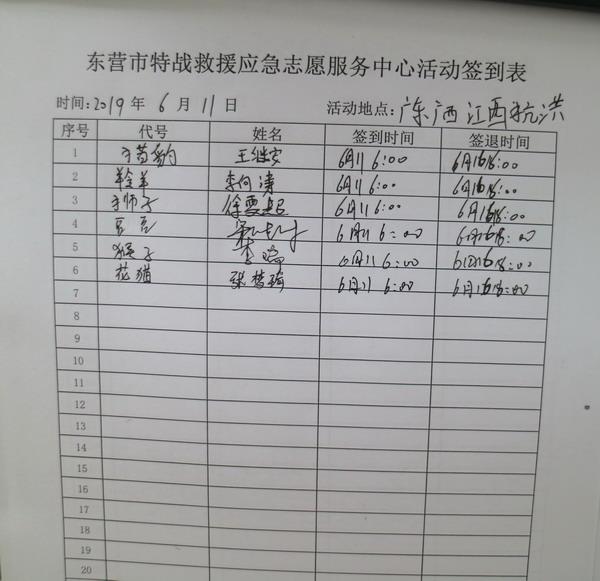 东营市特战救援应急志愿服务中心活动签到表
时间:2019年 6月 11日 活动地点:广东 广西 江西抗洪
序号 代号 姓名 签到时间 签退时间
1 猎豹 王继安 6月11 6:00 6月16 18:00
2 羚羊 李向涛 6月11 6:00 6月16 18:00
3 狮子 徐 6月11 6:00 6月16 18:00
4 豆豆 6月11 6:00 6月16 18:00
5 猴子 李瑞 6月11 6:00 6月16 18:00
6 花猫 张梦瑜 6月11 6:00 6月16 18:00
7
8
9
10
11
12
13
14
15
16
17
18
19
20